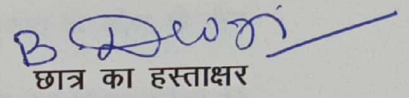 B Devi
छात्र का हस्ताक्षर